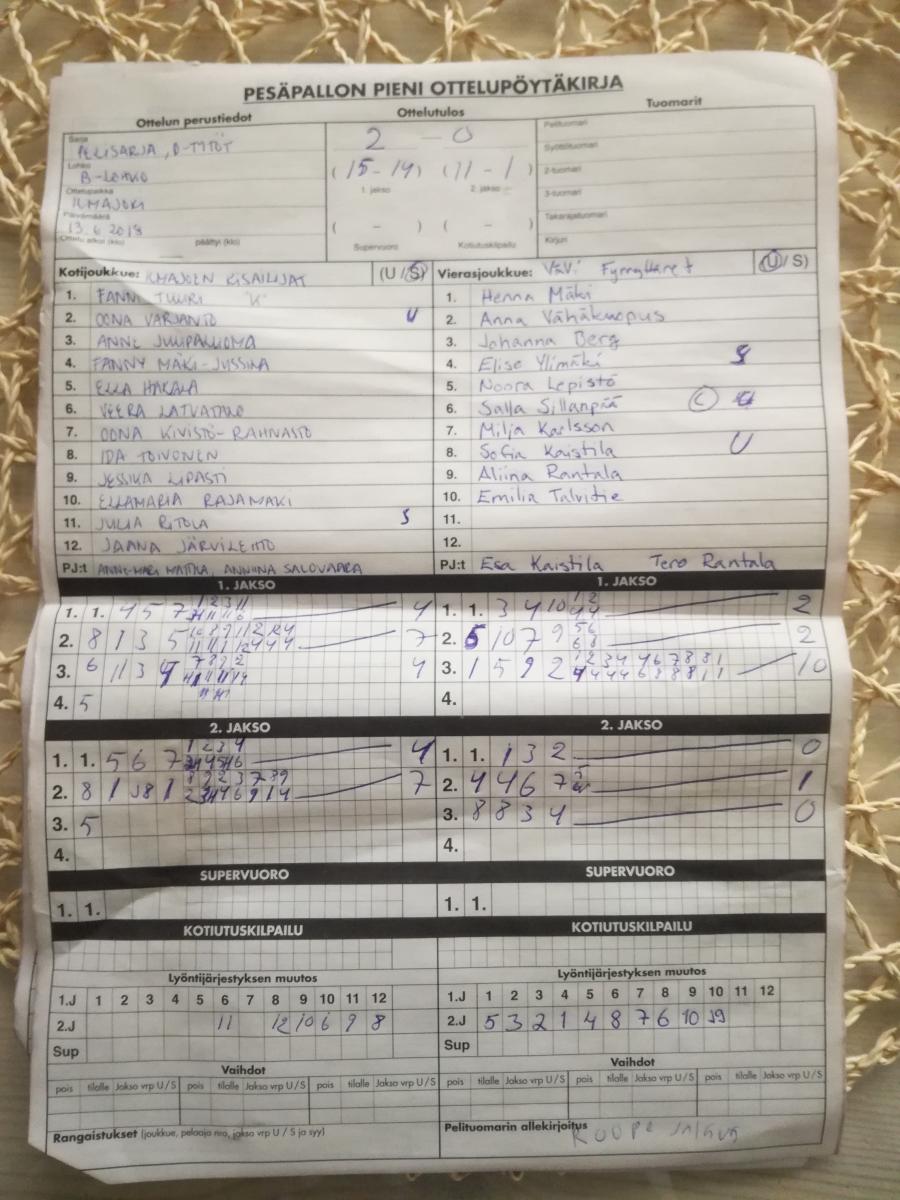 PESÄPALLON PIENI OTTELUPÖYTÄKIRJA
Ottelun perustiedot
Ottelutulos
Tuomarit
Sarja
PELISARJA, D-TYTÖT
Lohko
B-LOHKO
Ottelupaikka
ILMAJOKI
Päivämäärä
13.6.2018
Ottelu alkoi (klo) päättyi (klo)
2 - 0
(15-14) (11-1)
1. jakso 2. jakso
( - ) ( - )
Supervuoro Kotiutuskilpailu
Pelituomari
Syöttötuomari
2-tuomari
3-tuomari
Takarajatuomari
Kirjuri
Kotijoukkue: ILMAJOEN KISAILIJAT (U/S)
1. FANNI TUURI "K"
2. OONA VARJANTO U
3. ANNE JUUPALUOMA
4. FANNY MÄKI-JUSSILA
5. ELLA HAKALA
6. VEERA LATVATALO
7. OONA KIVISTÖ-RAHNASTO
8. IDA TOIVONEN
9. JESSIKA LIPASTI
10. ELLAMARIA RAJAMÄKI
11. JULIA RITOLA S
12. JAANA JÄRVILEHTO
PJ:t ANNE-MARI MATTILA, ANNIINA SALOVAARA
Vierasjoukkue: VäVi Fyrryllaret (U/S)
1. Henna Mäki
2. Anna Vähäkuopus
3. Johanna Berg
4. Elise Ylimäki S
5. Noora Lepistö
6. Salla Sillanpää C
7. Milja Karlsson
8. Sofia Kaistila U
9. Aliina Rantala
10. Emilia Talvitie
11.
12.
PJ:t Esa Kaistila Tero Rantala
1. JAKSO
1. 1. 4 5 7 4
2. 8 1 3 5 7
3. 6 11 3 4 4
4. 5
1. JAKSO
1. 1. 3 4 10 2
2. 6 10 7 9 2
3. 1 5 9 2 10
4.
2. JAKSO
1. 1. 5 6 7 4
2. 8 1 7
3. 5
4.
2. JAKSO
1. 1. 1 3 2 0
2. 4 4 6 7 1
3. 8 8 3 4 0
4.
SUPERVUORO
1. 1.
SUPERVUORO
1. 1.
KOTIUTUSKILPAILU
KOTIUTUSKILPAILU
Lyöntijärjestyksen muutos
1.J 1 2 3 4 5 6 7 8 9 10 11 12
2.J 11 12 10 6 9 8
Sup
Lyöntijärjestyksen muutos
1.J 1 2 3 4 5 6 7 8 9 10 11 12
2.J 5 3 2 1 4 8 7 6 10 9
Sup
Vaihdot
pois tilalle Jakso vrp U/S pois tilalle Jakso vrp U/S pois tilalle Jakso vrp U/S
Vaihdot
pois tilalle Jakso vrp U/S pois tilalle Jakso vrp U/S pois tilalle Jakso vrp U/S
Rangaistukset (joukkue, pelaaja nro, jakso vrp U / S ja syy)
Pelituomarin allekirjoitus